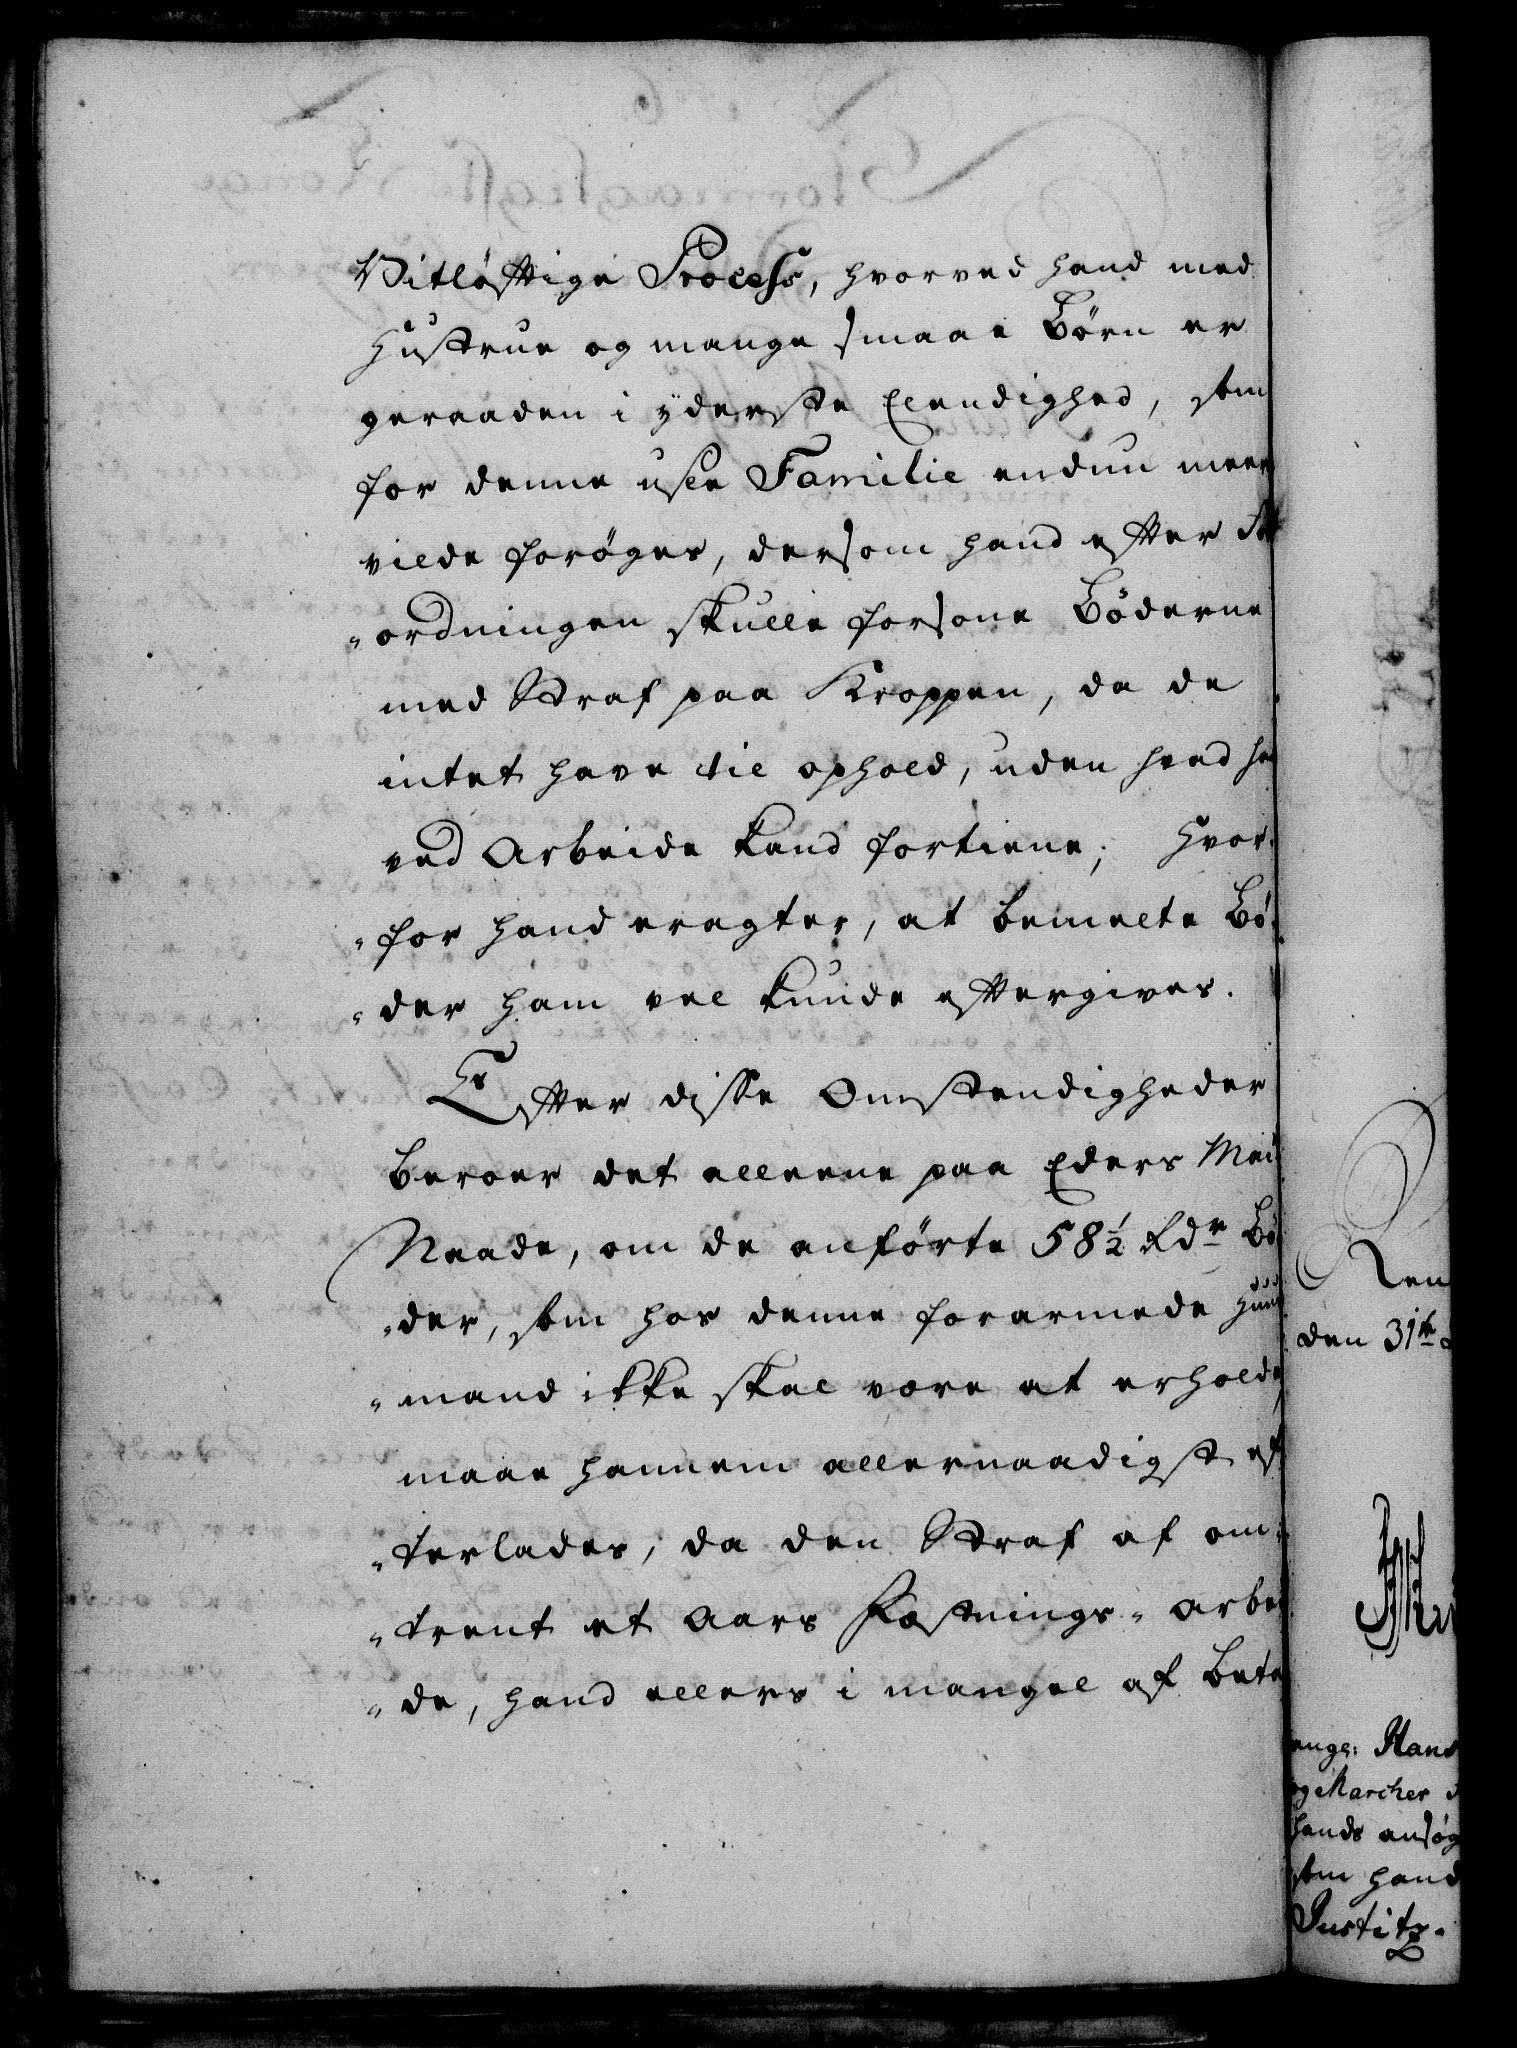 Vitløftige Process, hvorved hand med
Hustrue og mange smaae Børn er
geraaden i yderste Elendighed, som
for denne usle Familie endnu meer
vilde forøges, dersom hand efter For
„ordningen skulle forsone Bøderne
med Straf paa Kroppen, da de
intet have til ophold, uden hvad ha
ved Arbeide kand fortiene; Hvor„
„for hand eragter, at bemelte Bø„
„der ham vel kunde eftergives.
Efter disse Omstendigheder
beroer det alleene paa Eders May
Naade, om de anførte 58½ Rdr Bø
„der, som hos denne forarmede Huus
„mand ikke skal være at erholde,
maae hannem allernaadigst ef
„terlades, da den Straf af om„
„trent et Aars Fæstnings„ Arbei
„de, hand ellers i mangel af beta
Ren
den 31te
ange: Hans
og Marcher
hands ansøg
som hand
Justitz„